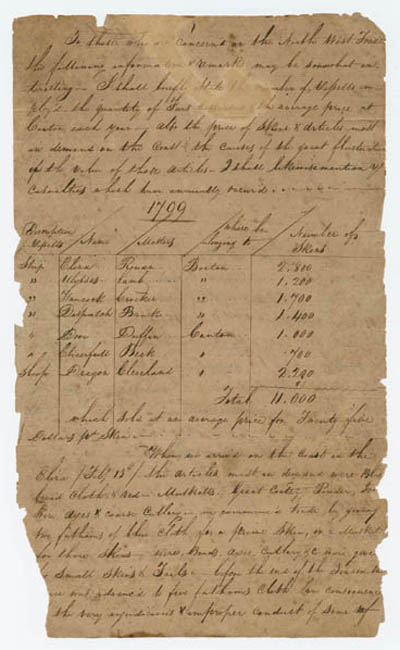 To those who are concerned in the North West Trade
the following information & remarks may be somewhat in-
teresting - I shall briefly state the number of Vessells em-
ploy'd the quantity of Furs & the average price at
Canton each year - also the price of Skins & articles most
in demand on the Coast & the causes of the great fluctuation
of the value of those articles. I shall likewise mention
casualties which have annually occurr'd
1799
Description Vessells / Name / Masters / where be longing to / Number of Skins
Ship Eliza Rowan Boston 2.800
" Ulysses Lamb " 1.200
" Hancock Crocker " 1.700
" Despatch Breck " 1.400
" Dove Duffin Canton 1.000
" Cheerfull Beck " 700
Sloop Dragon Cleveland " 2.200
Total 11.000
which sold at an average price for Twenty five
Dollars pr Skin
When we arriv'd on the Coast in the
Eliza (Feby 13th) the articles most in demand were Blue
Cloth & red - Musketts - Great Coats - Powder
Axes & coarse Cutlery - we commenc'd trade by giving
two fathoms of blue cloth for a prime Skin, or a Musket
for three Skins - wire, Beads, Axes, Cutlery &c were gave
for small Skins & Tails - before the end of the season
was advanc'd to five fathoms Cloth (in consequence
the very injudicious & improper conduct of some of